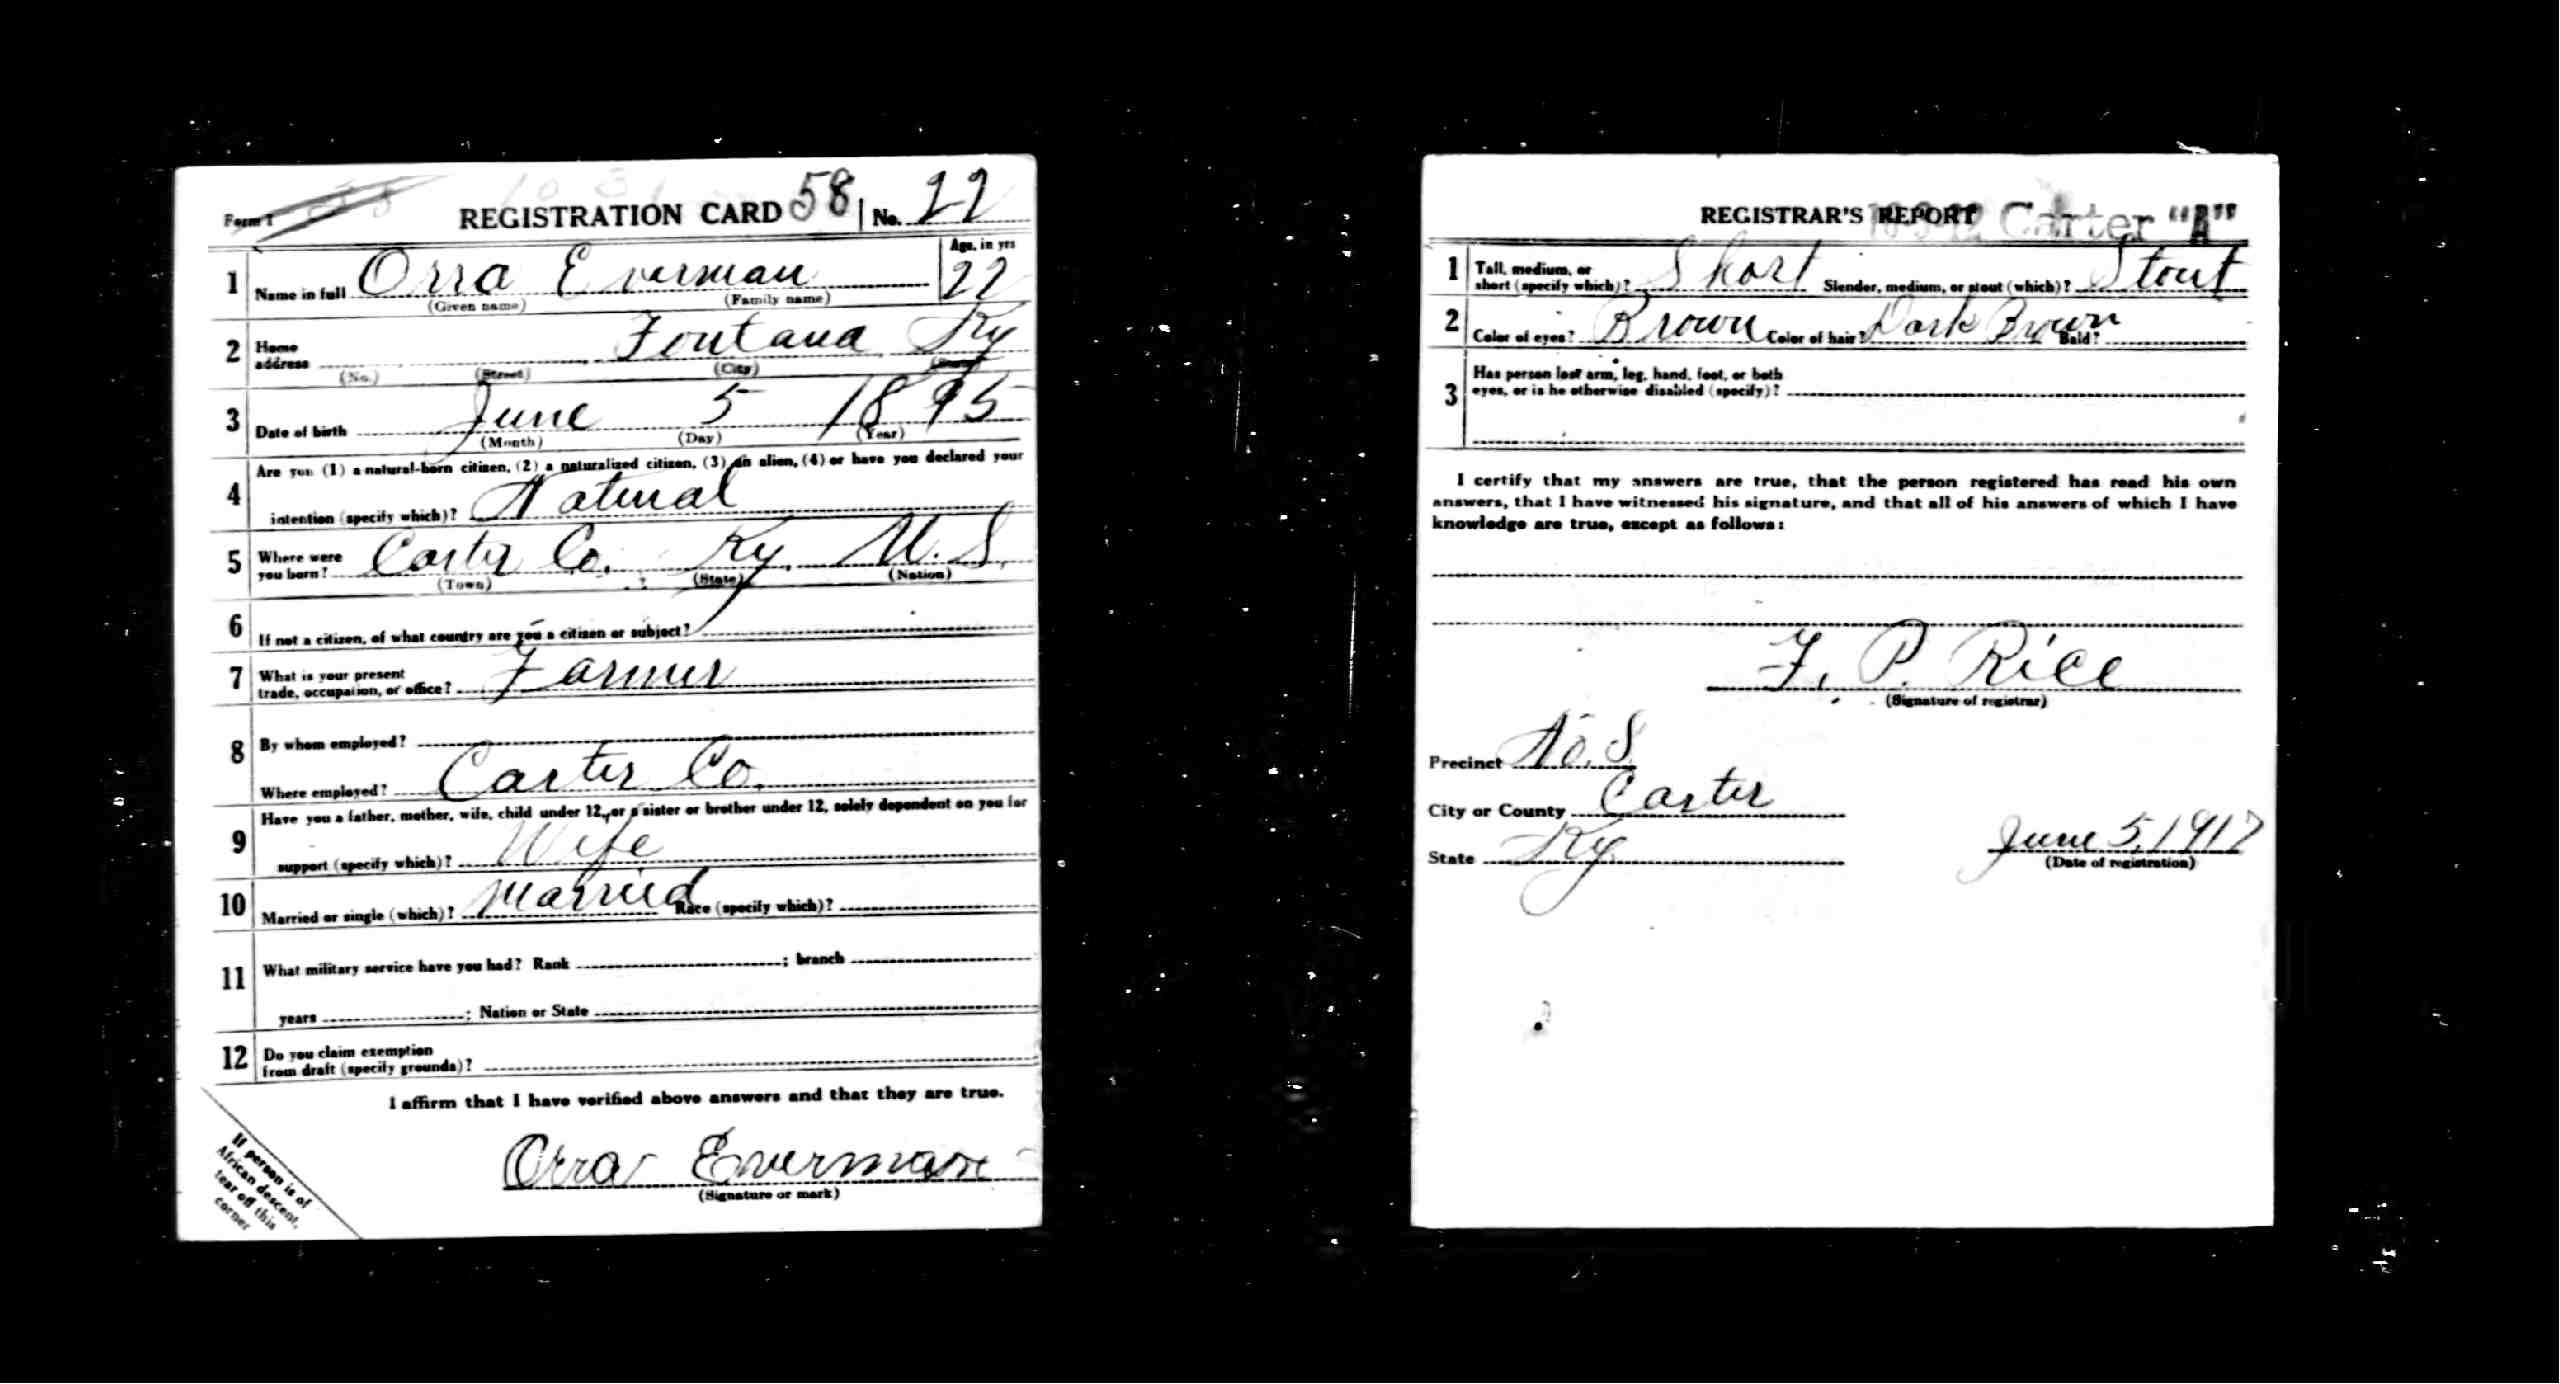 Form 1 REGISTRATION CARD 58 No. 22
1 Name in full Orra Everman Age, in yrs 22
(Given name) (Family name)
2 Home address Fontana Ky
(No.) (Street) (City) (State)
3 Date of birth June 5 1895
(Month) (Day) (Year)
4 Are you (1) a natural-born citizen, (2) a naturalized citizen, (3) an alien, (4) or have you declared your
intention (specify which)? Natural
5 Where were you born? Carter Co. Ky. U. S.
(Town) (State) (Nation)
6 If not a citizen, of what country are you a citizen or subject?
7 What is your present
trade, occupation, or office? Farmer
8 By whom employed?
Where employed? Carter Co.
9 Have you a father, mother, wife, child under 12, or a sister or brother under 12, solely dependent on you for
support (specify which)? Wife
10 Married or single (which)? Married Race (specify which)?
11 What military service have you had? Rank ; branch
years ; Nation or State
12 Do you claim exemption
from draft (specify grounds)?
I affirm that I have verified above answers and that they are true.
Orra Everman
(Signature or mark)
If person is of
African descent,
tear off this
corner
REGISTRAR'S REPORT Carter "A"
1 Tall, medium, or
short (specify which)? Short Slender, medium, or stout (which)? Stout
2 Color of eyes? Brown Color of hair? Dark Brown Bald?
3 Has person lost arm, leg, hand, foot, or both
eyes, or is he otherwise disabled (specify)?
I certify that my answers are true, that the person registered has read his own
answers, that I have witnessed his signature, and that all of his answers of which I have
knowledge are true, except as follows:
F. P. Rice
(Signature of registrar)
Precinct No.
City or County Carter
State Ky. June 5, 1917
(Date of registration)